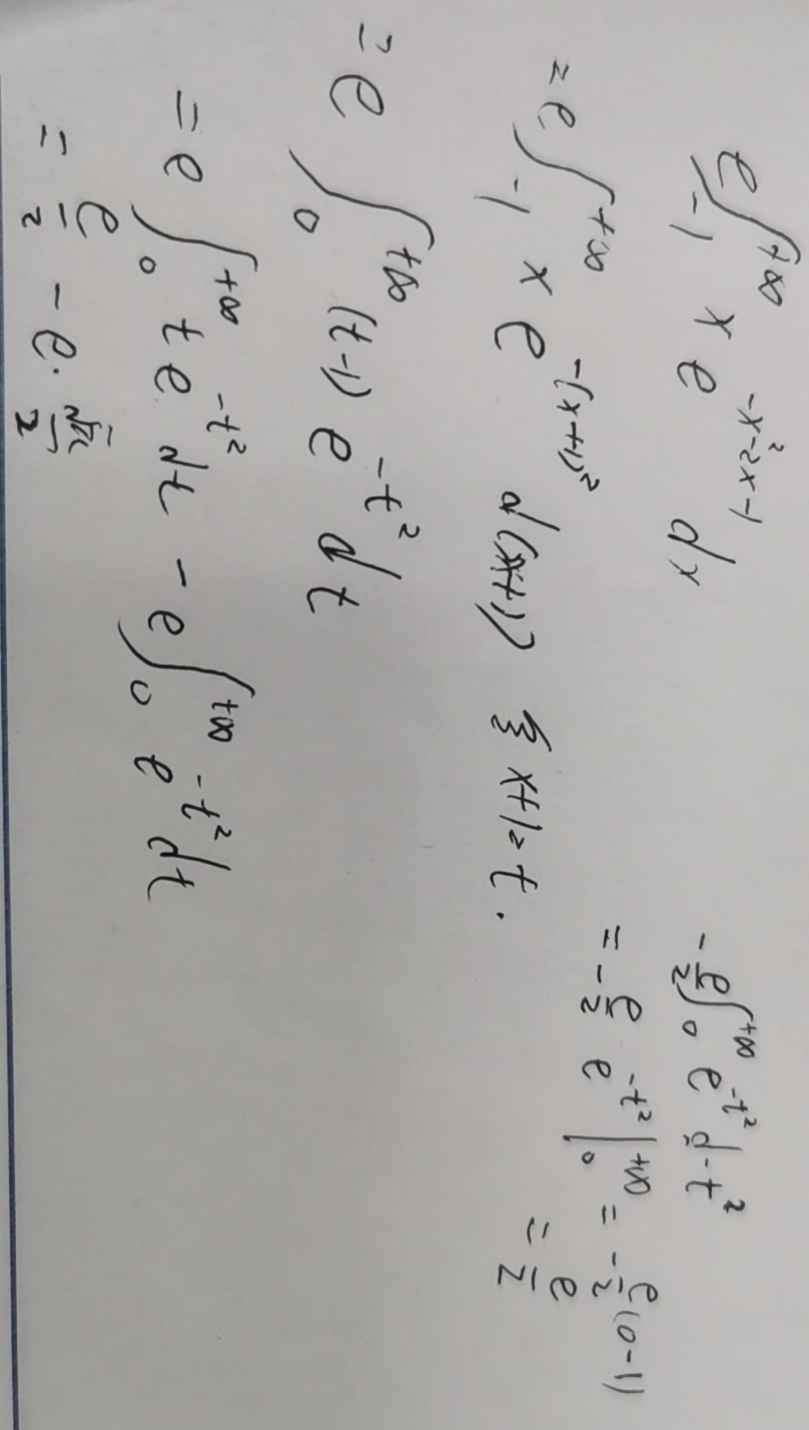 e∫_{-1}^{+∞} x e^{-x²-2x-1} dx
= e∫_{-1}^{+∞} x e^{-(x+1)²} d(x+1) 令 x+1=t.
= e∫_0^{+∞} (t-1) e^{-t²} dt
= e∫_0^{+∞} t e^{-t²} dt - e∫_0^{+∞} e^{-t²} dt
= e/2 - e·√π/2
-e/2 ∫_0^{+∞} e^{-t²} d-t²
= -e/2 e^{-t²}|_0^{+∞} = -e/2 (0-1)
= e/2